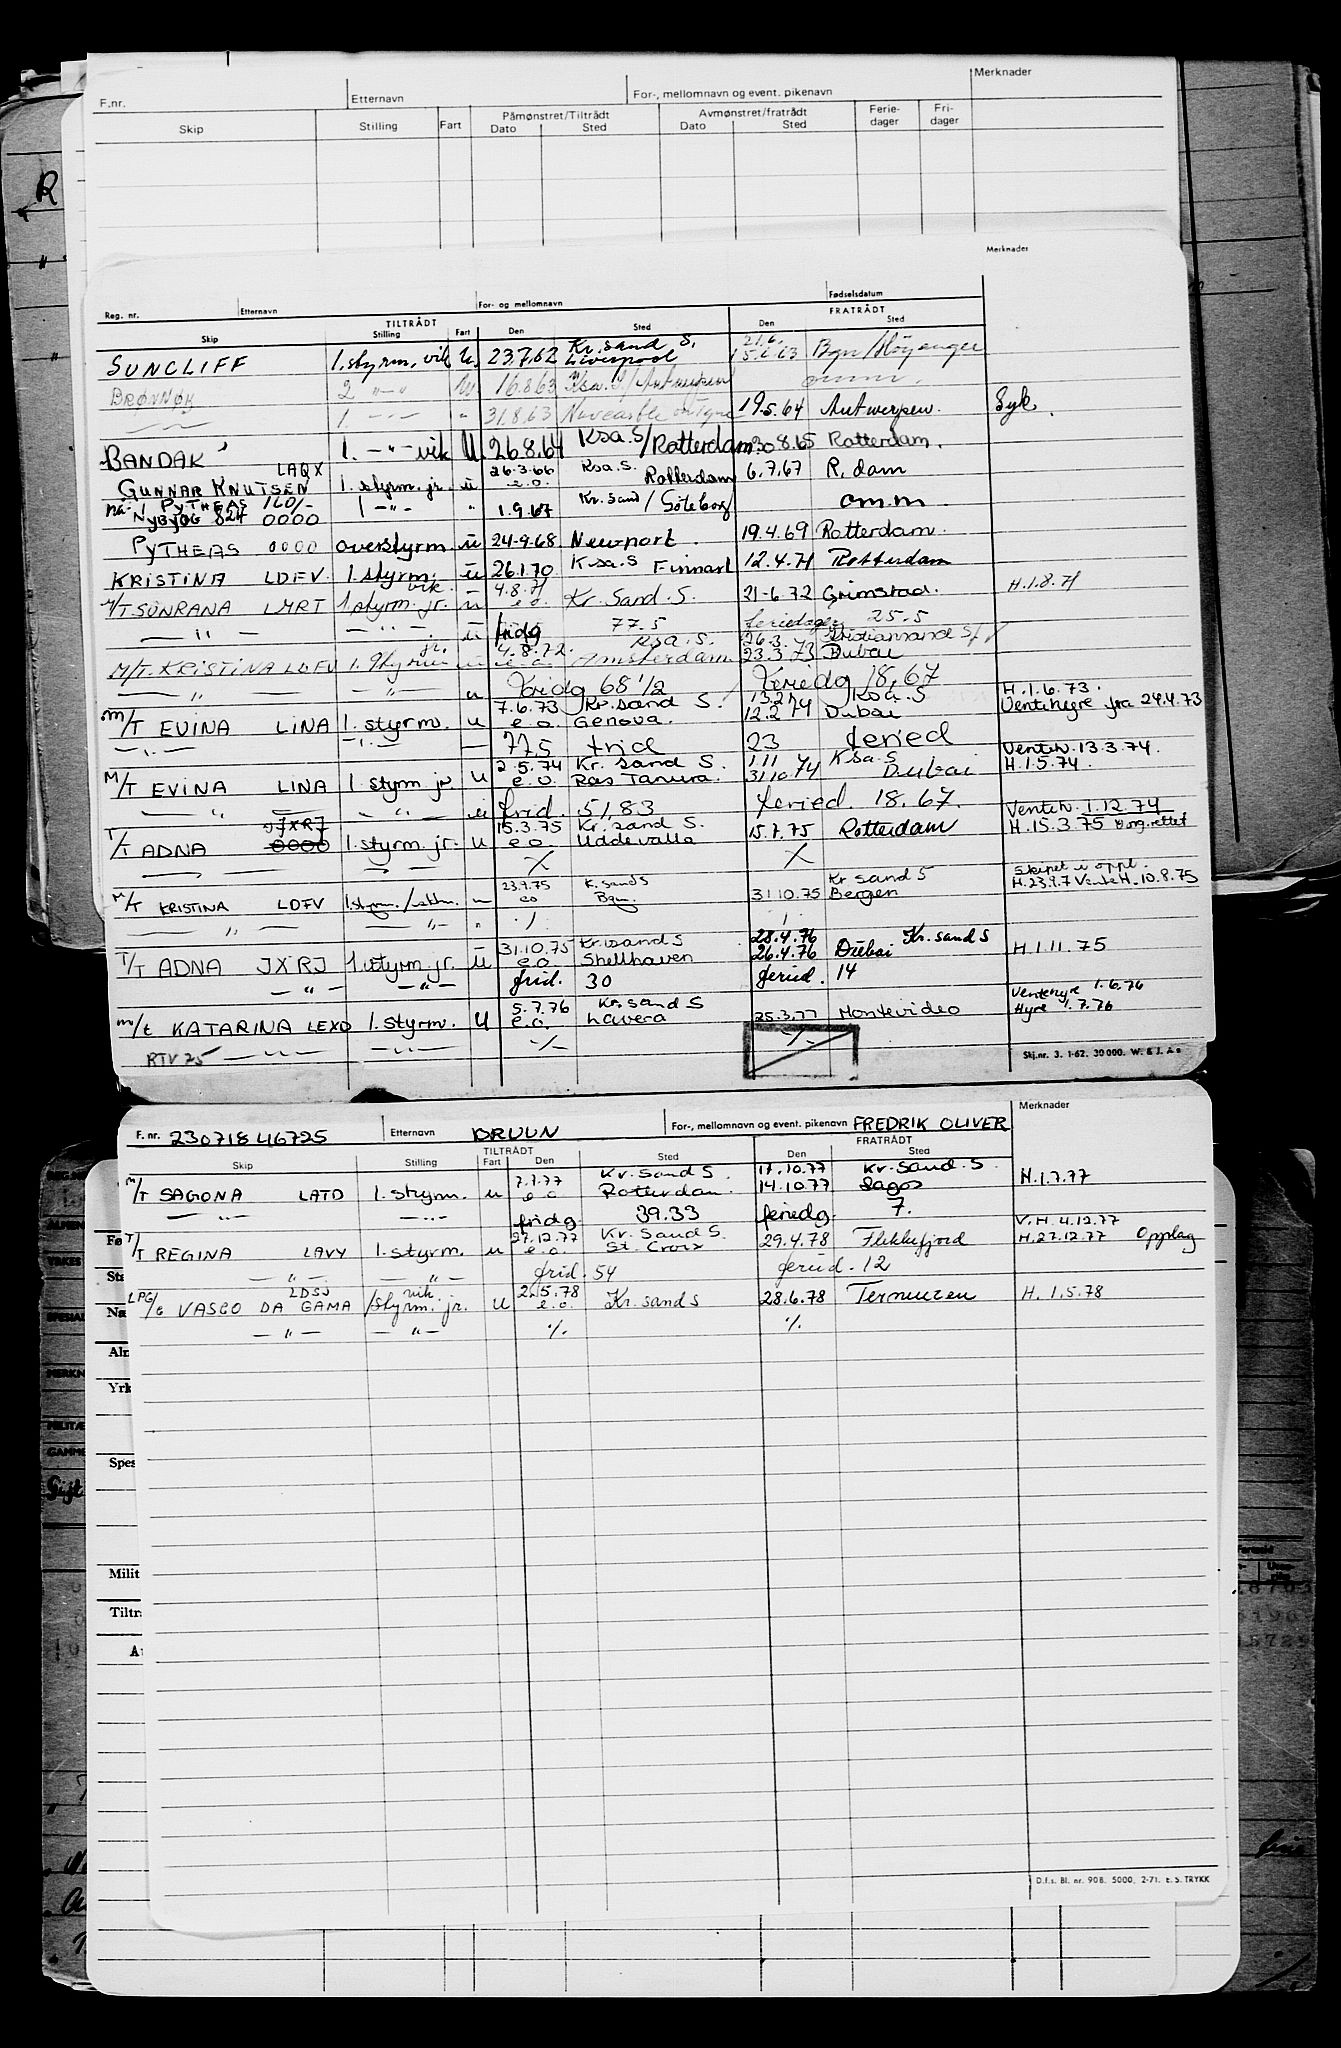 F.nr. Etternavn For-, mellomnavn og event. pikenavn Merknader
Skip Stilling Fart Påmønstret/Tiltrådt Avmønstret/fratrådt Ferie-dager Fri-dager
Dato Sted Dato Sted
R
Merknader
Reg. nr. Etternavn For- og mellomnavn Fødselsdatum
TILTRÅDT FRATRÅDT
Skip Stilling Fart Den Sted Den Sted
SUNCLIFF 1.styrm. vik U. 23.7.62 Kr.sand S. Liverpool 21.6. 15.6.63 Bgn/Höyanger
BRØNNØY 2 -"- u 16.8.63 Ksa. S/Antwerpen omm.
-"- 1. -"- " 31.8.63 Newcastle on Tyne 19.5.64 Antwerpen. Syk.
BANDAK 1. -"- vik U. 26.8.64 Ksa.S/Rotterdam. 30.8.65 Rotterdam.
GUNNAR KNUTSEN LAQX 1. styrm. jr. u 26.3.66 e.o. Ksa.S. Rotterdam 6.7.67 R.dam
nå: PYTHEAS 160/-
NYBYGG 824 0000 1 -"- " 1.9.67 Kr.sand/Göteborg omm
PYTHEAS 0000 overstyrm. u 24.9.68 Newport. 19.4.69 Rotterdam.
KRISTINA LDFV 1.styrm. vik. u 26.1.70 Ksa.S Finnart 12.4.71 Rotterdam
M/T SUNRANA LMRT 1.styrm. jr. u 4.8.71 e.o. Kr.Sand.S. 21-6.72 Grimstad. H.1.8.71
-"- -"- u fridg 77.5 feriedager 25.5
M/T. KRISTINA LDFV 1. Styrm jr. u 4.8.72. e.o. Ksa.S. Amsterdam 26.3. 23.3.73 Kristiansand S/ Dubai
-"- -"- u Fridg 68 1/2 Feriedg 18,67
M/T EVINA LINA 1. styrm. u 7.6.73 e.o. Kr.sand S. Genova. 13.2. 12.2.74 Ksa.S Dubai H.1.6.73. Ventehyre fra 24.4.73
-"- -"- 77.5 frid 23 feried
M/T EVINA LINA 1. styrm. jr. u 2.5.74 e.o. Kr.sand S. Ras Tanura. 1.11 31.10.74 Ksa.S Dubai Venteh. 13.3.74. H.1.5.74.
" -"- u frid. 51,83 feried. 18.67.
T/T ADNA JXRJ 0000 1.styrm. jr. u 15.3.75 e.o. Kr.sand S. Uddevalla 15.7.75 Rotterdam Venteh. 1.12.74 H.15.3.75
-"- -"- % %
M/T KRISTINA LDFV 1.styrm. 23.9.75 eo K.sand S Bgn. 31.10.75 Kr sand S Bergen Skipet i oppl. H.23.9.7 VenteH. 10.8.75
-"- -"- "
T/T ADNA JXRJ 1.styrm. jr. u 31.10.75 e.o. Kr.sand S Shellhaven 28.4.76 26.4.76 Kr.sand S Dubai H.1.11.75
-"- -"- frid. 30 feried. 14
m/t KATARINA LEXO 1. styrm. u 5.7.76 e.o. Kr.sand S Lavera 25.3.77 Montevideo Ventehyre 1.6.76 Hyre 1.7.76
RTV 75 -"- -"- -/- -/-
Skj.nr. 3. 1-62. 30 000. W. & J. A s
Merknader
F. nr. 230718 46725 Etternavn BRUUN For-, mellomnavn og event. pikenavn FREDRIK OLIVER
TILTRÅDT FRATRÅDT
Skip Stilling Fart Den Sted Den Sted
M/T SAGONA LATD 1. styrm. u 7.7.77 e.o. Kr.Sand S. Rotterdam. 17.10.77 14.10.77 Kr.Sand.S. Lagos H.1.7.77
-"- -"- fridg 39.33 feriedg. 7.
T/T REGINA LAVY 1.styrm. u 27.12.77 e.o. Kr.Sand S. St. Croix 29.4.78 Flekkefjord V.H. 4.12.77 H.27.12.77 Opplag
-"- -"- frid. 54 feried. 12
LPG/t VASCO DA GAMA LDSJ 1styrm. vik. jr. u 2.5.78 e.o. Kr.sand S 28.6.78 Terneuzen H. 1.5.78
-"- -"- % %
Fø
Sta
Na
Alm
Yrk
Spes
Milit
Tiltr
A
D.f.s. Bl. nr. 90B. 5000. 2-71. E.S. TRYKK